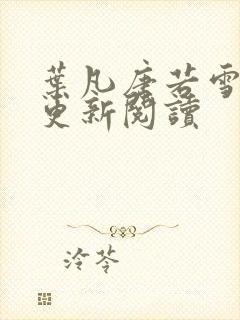 葉凡唐若雪
更新閱讀
泠苓